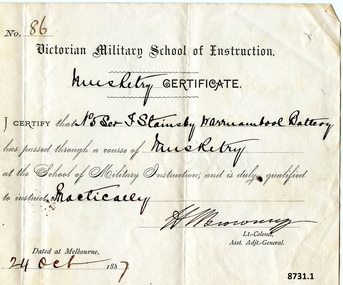 No. 86
Victorian Military School of Instruction.
Musketry CERTIFICATE.
I CERTIFY that No 5 F Stainsby Warrnambool Battery
has passed through a course of Musketry
at the School of Military Instruction, and is duly qualified
to instruct Practically
Lt.-Colonel,
Asst. Adjt.-General.
Dated at Melbourne.
24 Oct 1887
8731.1